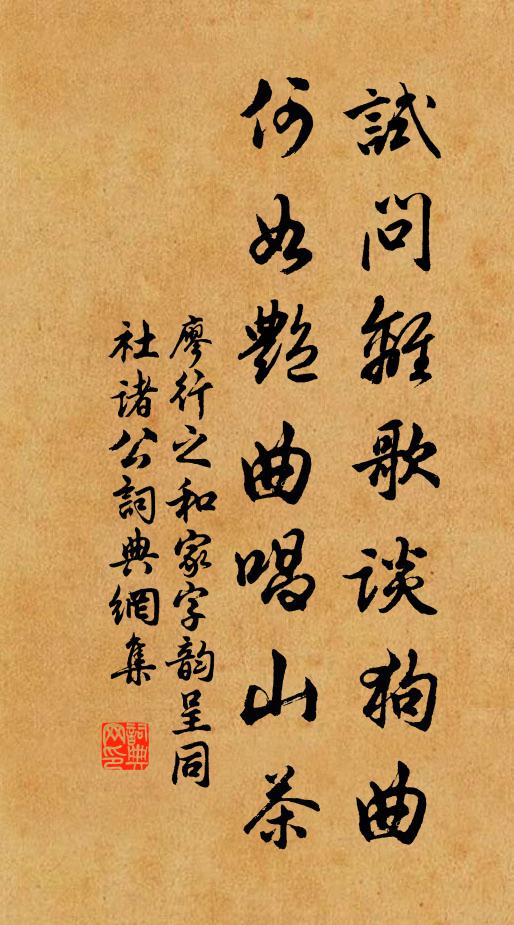 試問離歌談狗曲
何如艷曲唱山茶
廖行之和家字韵呈同
社诸公詞典網集
詞典
网印